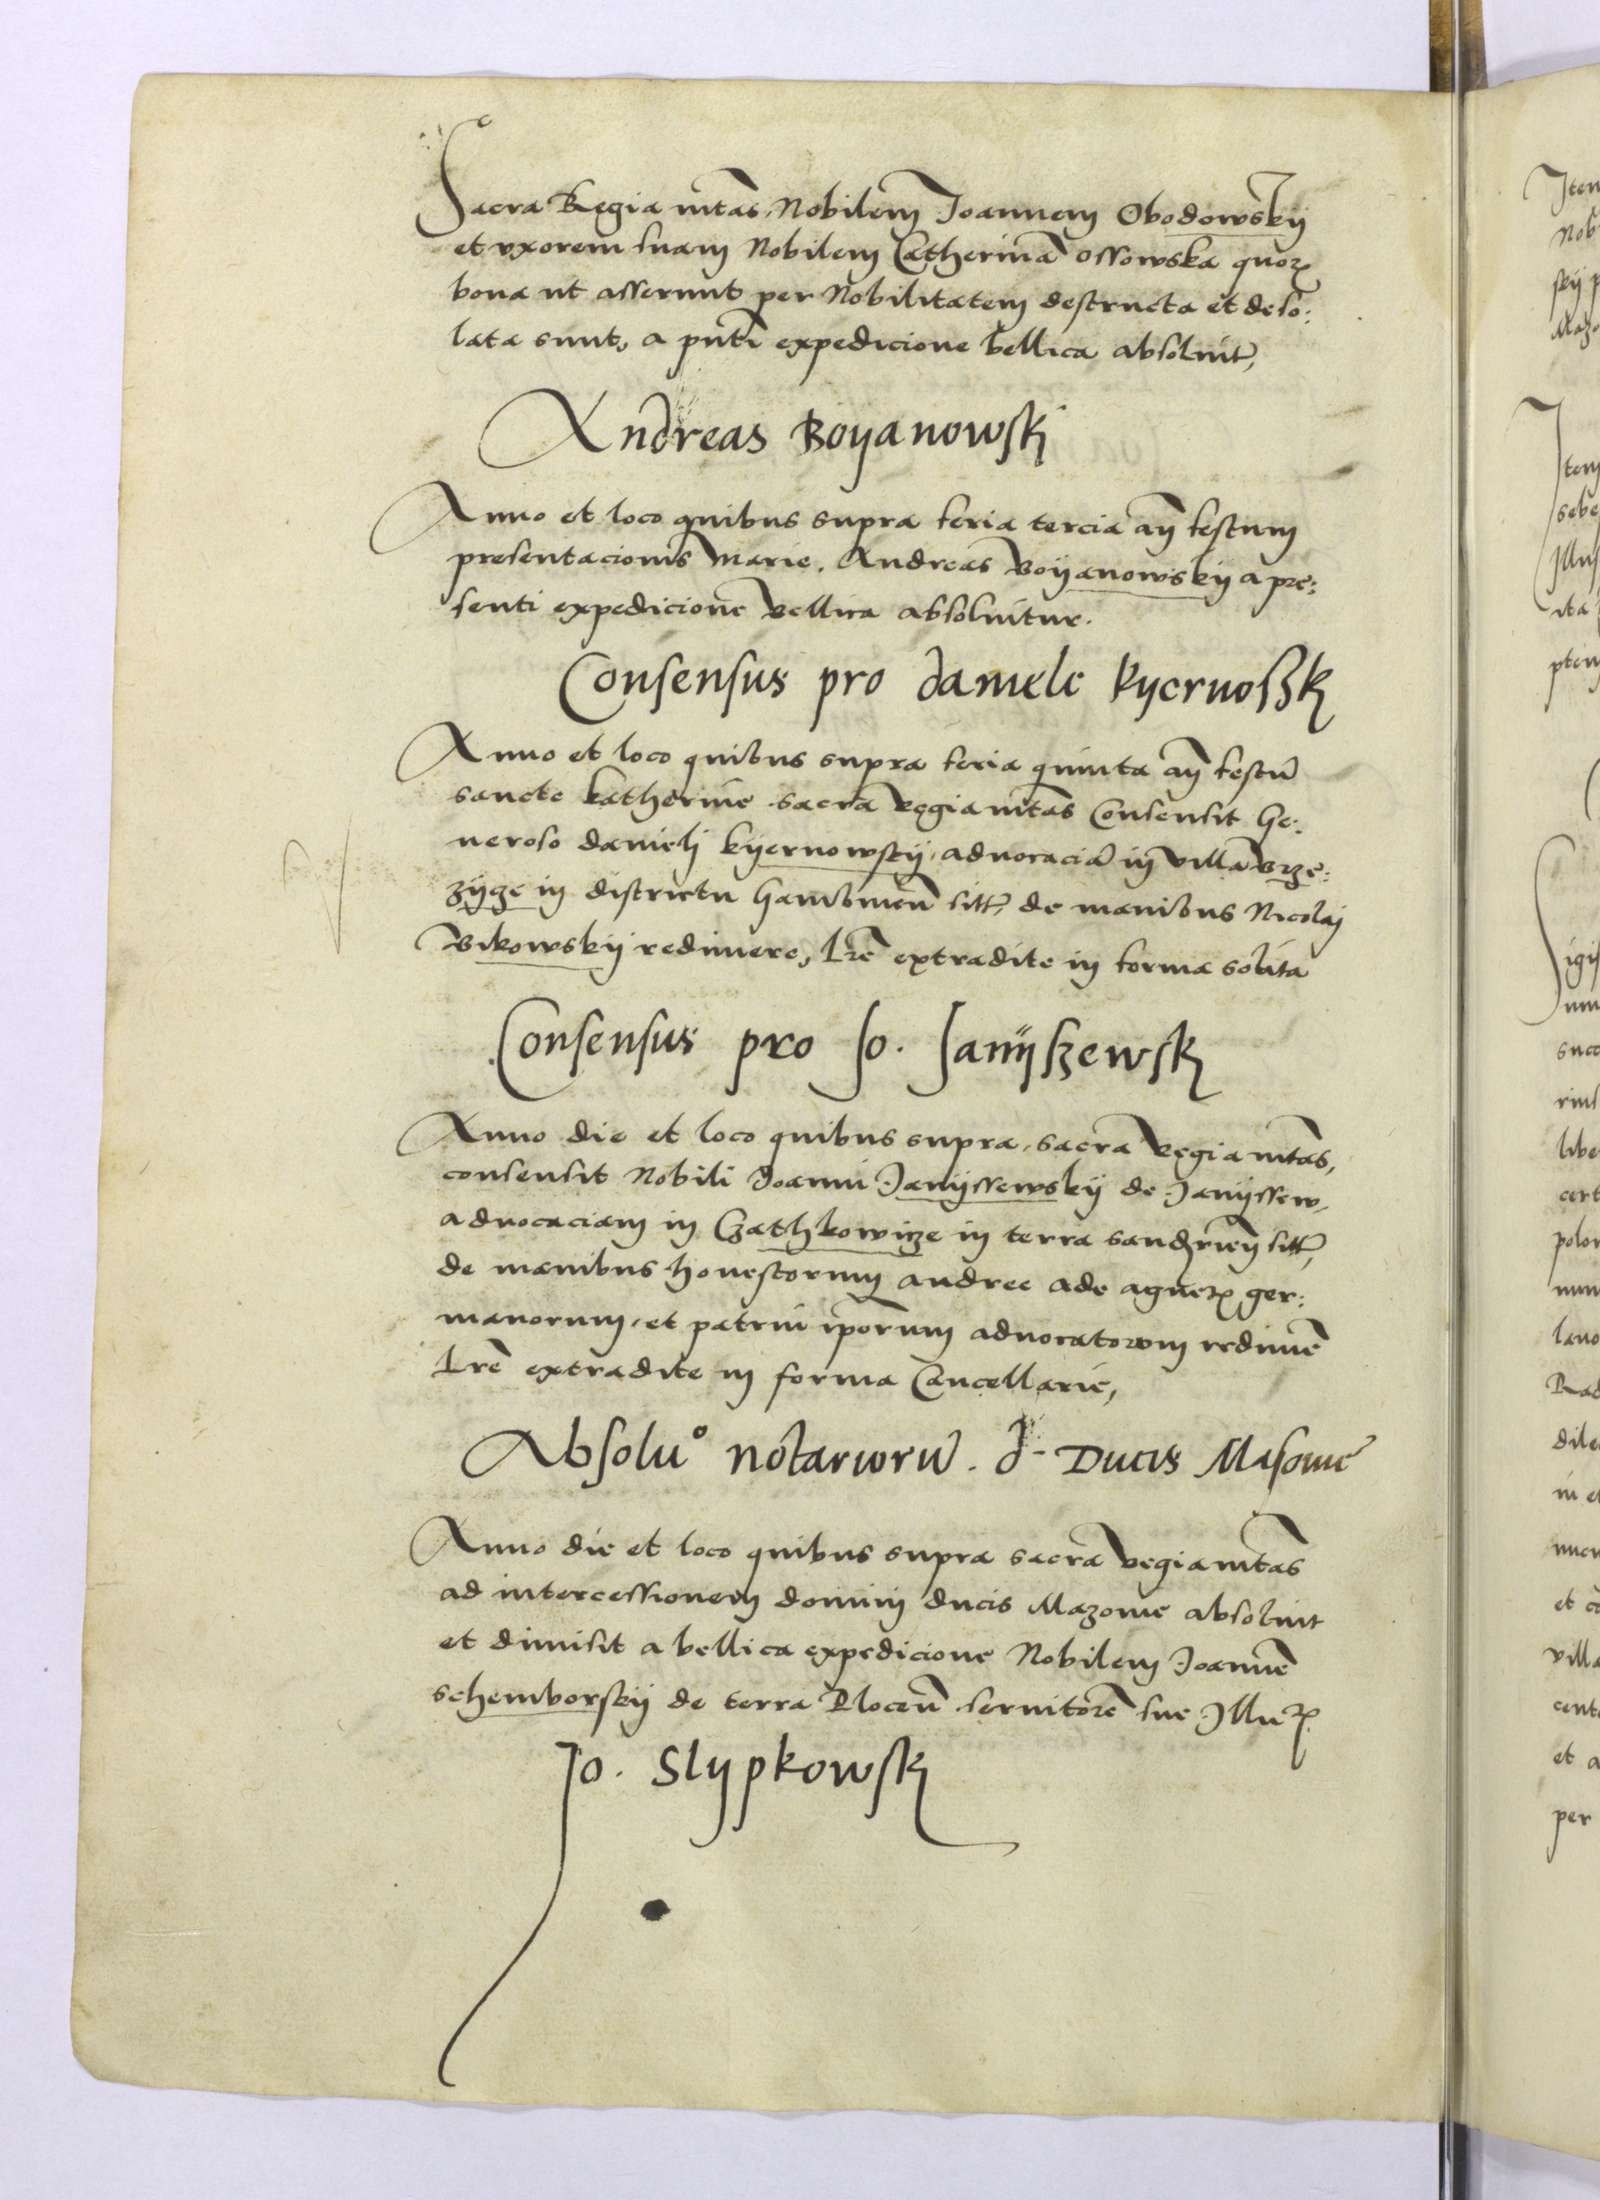 Sacra Regia mtas Nobilem Joannem Obodowskÿ
et vxorem suam Nobilem Catherinā Ossowska quoꝝ
bona ut asserunt per Nobilitatem destructa et deso:
lata sunt, a pn̄ti expedicione bellica absoluit,
Andreas Boyanowskj
Anno et loco quibus supra feria tercia an̄ festum
presentacionis Marie. Andreas Boÿanowskÿ a pre:
senti expedicione bellica absoluitur.
Consensus pro daniele kÿernoszk
Anno et loco quibus supra feria quinta an̄ festū
sancte katherine sacra regia mtas Consensit Ge:
neroso danielj kÿernowskÿ aduocaciā in villa Brze:
zÿze in districtu sitt, de manibus Nicolaj
Bikowskÿ redimere, Lr̄e extradite in forma solita
Consensus pro Jo. Janÿszewsk
Anno die et loco quibus supra sacra regia mtas,
consensit Nobili Joanni Janÿssewskÿ de Janÿssew,
aduocaciam in Czathkowicze in terra sitt,
de manibus honestorum andree ade ger:
manorum et patrui ip̄orum aduocatorum redimē
Lr̄e extradite in forma Cancellarie,
Absoluº notariorū d. Ducis Masouie
Anno die et loco quibus supra sacra regia mtas
ad intercessionem domini ducis Mazouie absoluit
et dimisit a bellica expedicione Nobilem Joannē
schemborskÿ de terra Plocen̄ seruitorē sue Illuꝝ
Jo. Slypkowskj